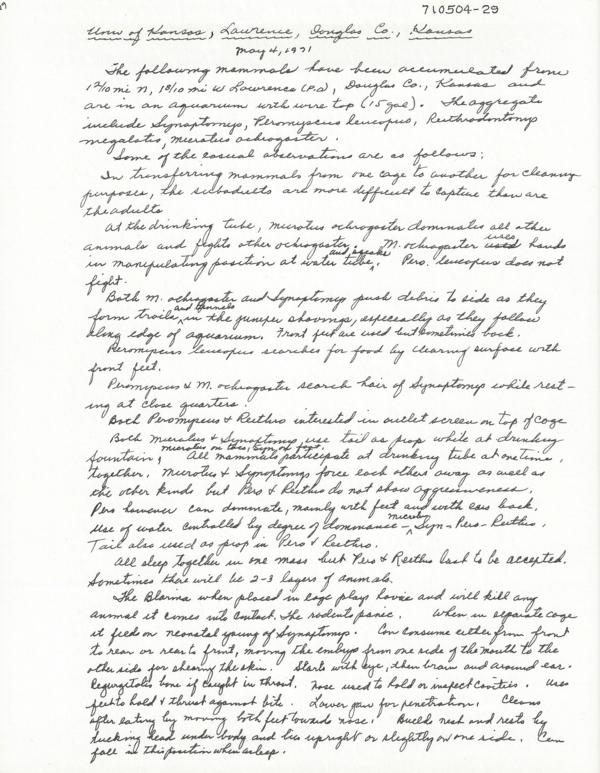 710504-29
Univ of Kansas, Lawrence, Douglas Co., Kansas
May 4, 1971
The following mammals have been accumulated from
1 2/10 mi N, 1 8/10 mi W Lawrence (P.O), Douglas Co., Kansas and
are in an aquarium with wire top (15 gal). The aggregate
include Synaptomys, Peromyscus leucopus, Reithrodontomys
megalotis, Microtus ochrogaster.
Some of the casual observations are as follows:
In transferring mammals from one cage to another for cleaning
purposes, the subadults are more difficult to capture than are
the adults
At the drinking tube, Microtus ochrogaster dominates all other
animals and fights other ochrogaster and squeaks. M. ochrogaster uses used hands
in manipulating position at water tube. Pero. leucopus does not
fight.
Both M. ochrogaster and Synaptomys push debris to side as they
form trails and tunnels in the juniper shavings, especially as they follow
along edge of aquarium. Front feet are used but sometimes back.
Peromyscus leucopus searches for food by clearing surface with
front feet.
Peromyscus & M. ochrogaster search hair of Synaptomys while rest-
ing at close quarters.
Both Peromyscus & Reithro interested in outlet screen on top of cage
Both Microtus & Synaptomys use tail as prop while at drinking
fountain, Microtus on this, Syn. on feet. All mammals participate at drinking tube at one time,
together. Microtus & Synaptomys force each others away as well as
the other kinds but Pero & Reithro do not show aggressiveness.
Pero however can dominate, mainly with feet and with ears back.
Use of water controlled by degree of dominance - Microtus - Syn - Pero - Reithro.
Tail also used as prop in Pero & Reithro.
All sleep together in one mass but Pero & Reithro last to be accepted.
Sometimes there will be 2-3 layers of animals.
The Blarina when placed in cage plays havoc and will kill any
animal it comes into contact. The rodents panic. When in separate cage
it feeds on neonatal young of Synaptomys. Can consume either from front
to rear or rear to front, moving the embryo from one side of the mouth to the
other side for shearing the skin. Starts with eye, then brain and around ear.
Regurgitates bone if caught in throat. Nose used to hold or inspect cavities. Uses
feet to hold & thrust against bite. Lower jaw for penetration. Cleans
after eating by moving both feet towards nose. Builds nest and rests by
tucking head under body and lies upright or slightly on one side. Can
fall in this position when asleep.